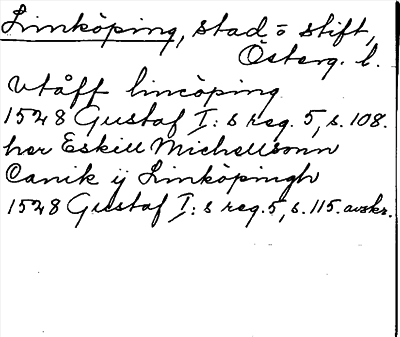 Linköping, stad o stift,
Österg. l.
Vtåff lincöping
1528 Gustaf I:s reg. 5, s. 108.
her Eskill Michellsonn
Canik ij Linköpingh
1528 Gustaf I:s reg. 5, s. 115. avskr.